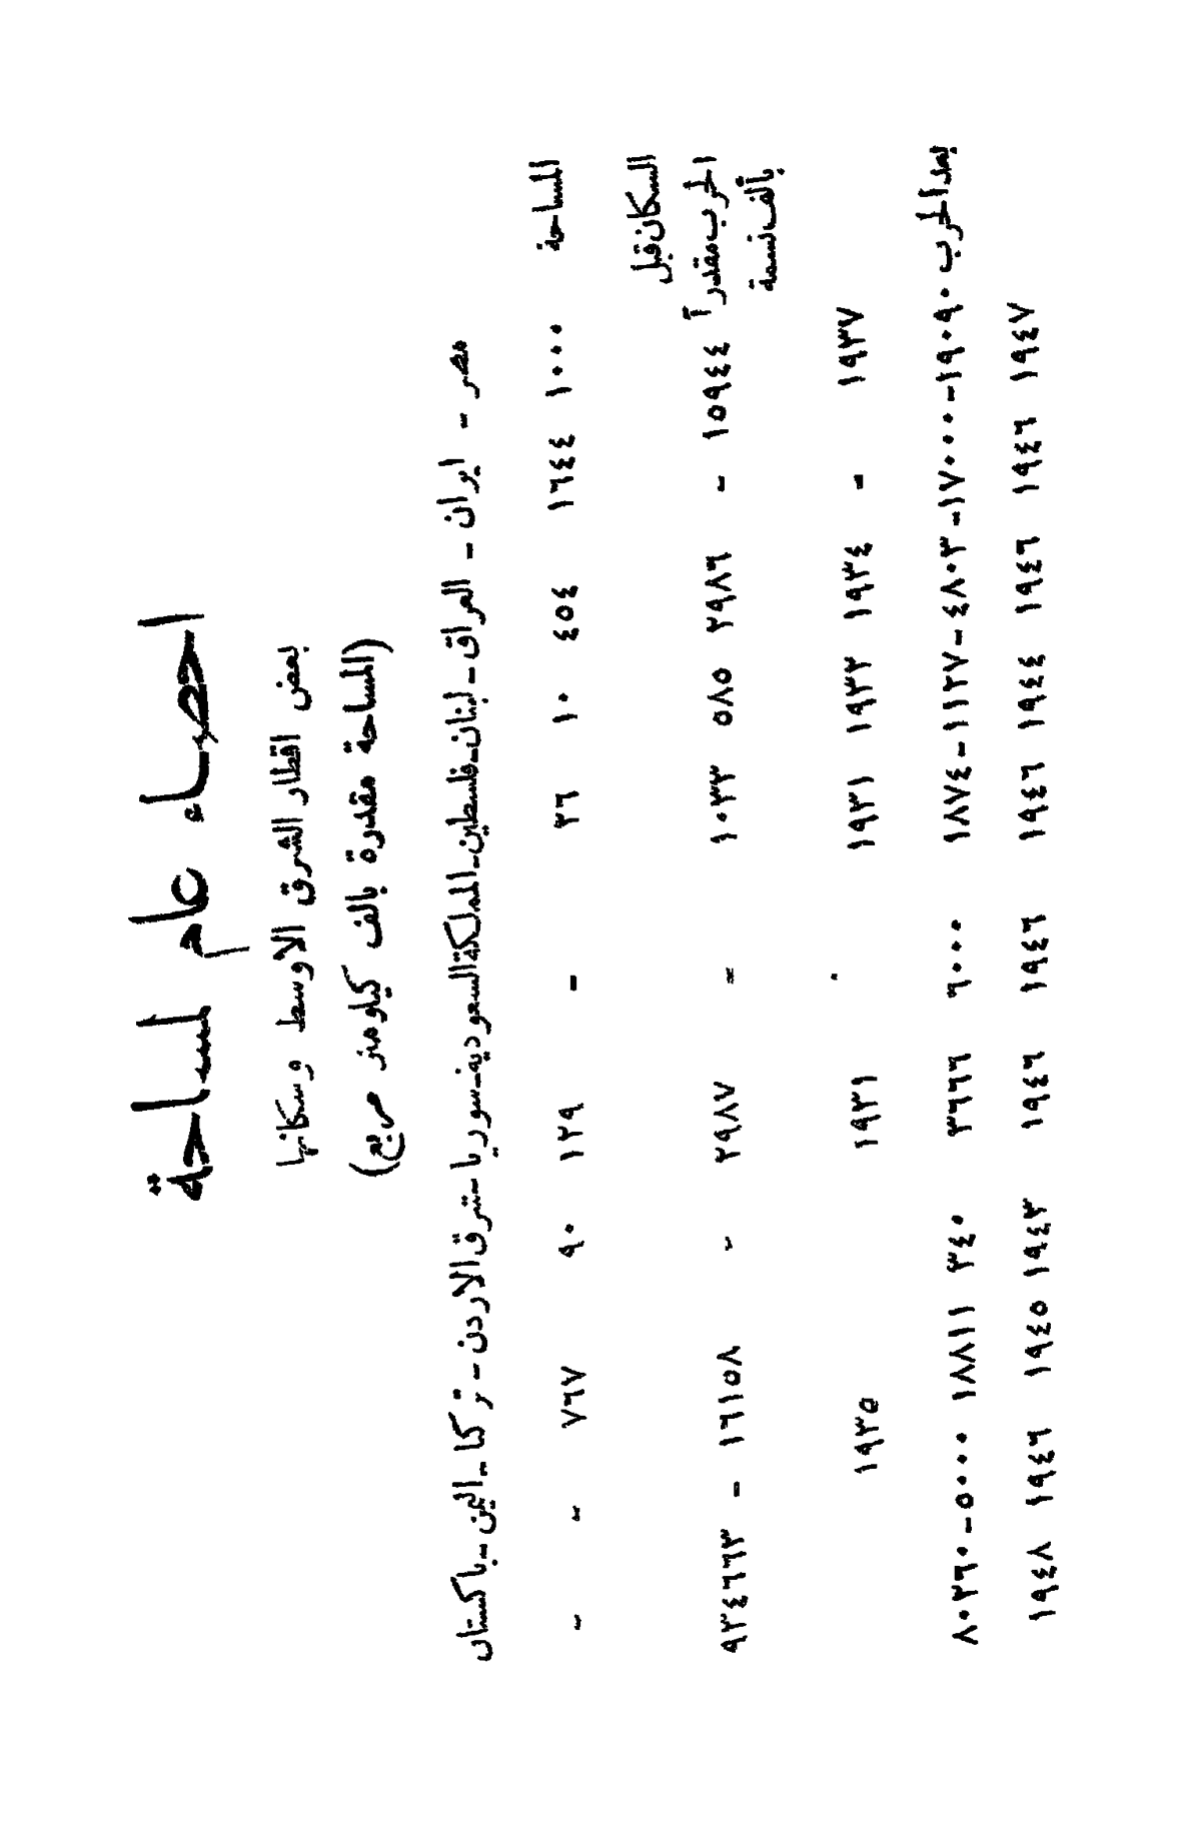 احصاء عام لمساحة
بعض اقطار الشرق الاوسط وسكانها
(المساحة مقدرة بالف كيلومتر مربع)
مصر - ايران - العراق - لبنان - فلسطين - المملكة السعودية - سوريا - شرق الاردن - تركيا - اليمن - باكستان
المساحة ١٠٠٠ ١٦٤٤ ٤٥٤ ١٠ ٢٦ - ١٢٩ ٩٠ ٧٦٧ - -
السكان قبل
الحرب مقدراً ١٥٩٤٤ - ٢٩٨٦ ٥٨٥ ١٠٣٣ = ٢٩٨٧ - ١٦١٥٨ - ٩٢٤٦٦٣
بألف نسمة
١٩٣٧ - ١٩٣٤ ١٩٣٢ ١٩٣١ ١٩٣١ ١٩٣٥
بعد الحرب ١٩٠٩٠ - ١٧٠٠٠ - ٤٨٠٣ - ١١٢٧ - ١٨٧٤ ٦٠٠٠ ٣٦٦٦ ٣٤٠ ١٨٨١١ ٥٠٠٠ - ٨٠٢٦٠
١٩٤٧ ١٩٤٦ ١٩٤٦ ١٩٤٤ ١٩٤٦ ١٩٤٦ ١٩٤٦ ١٩٤٣ ١٩٤٥ ١٩٤٦ ١٩٤٨